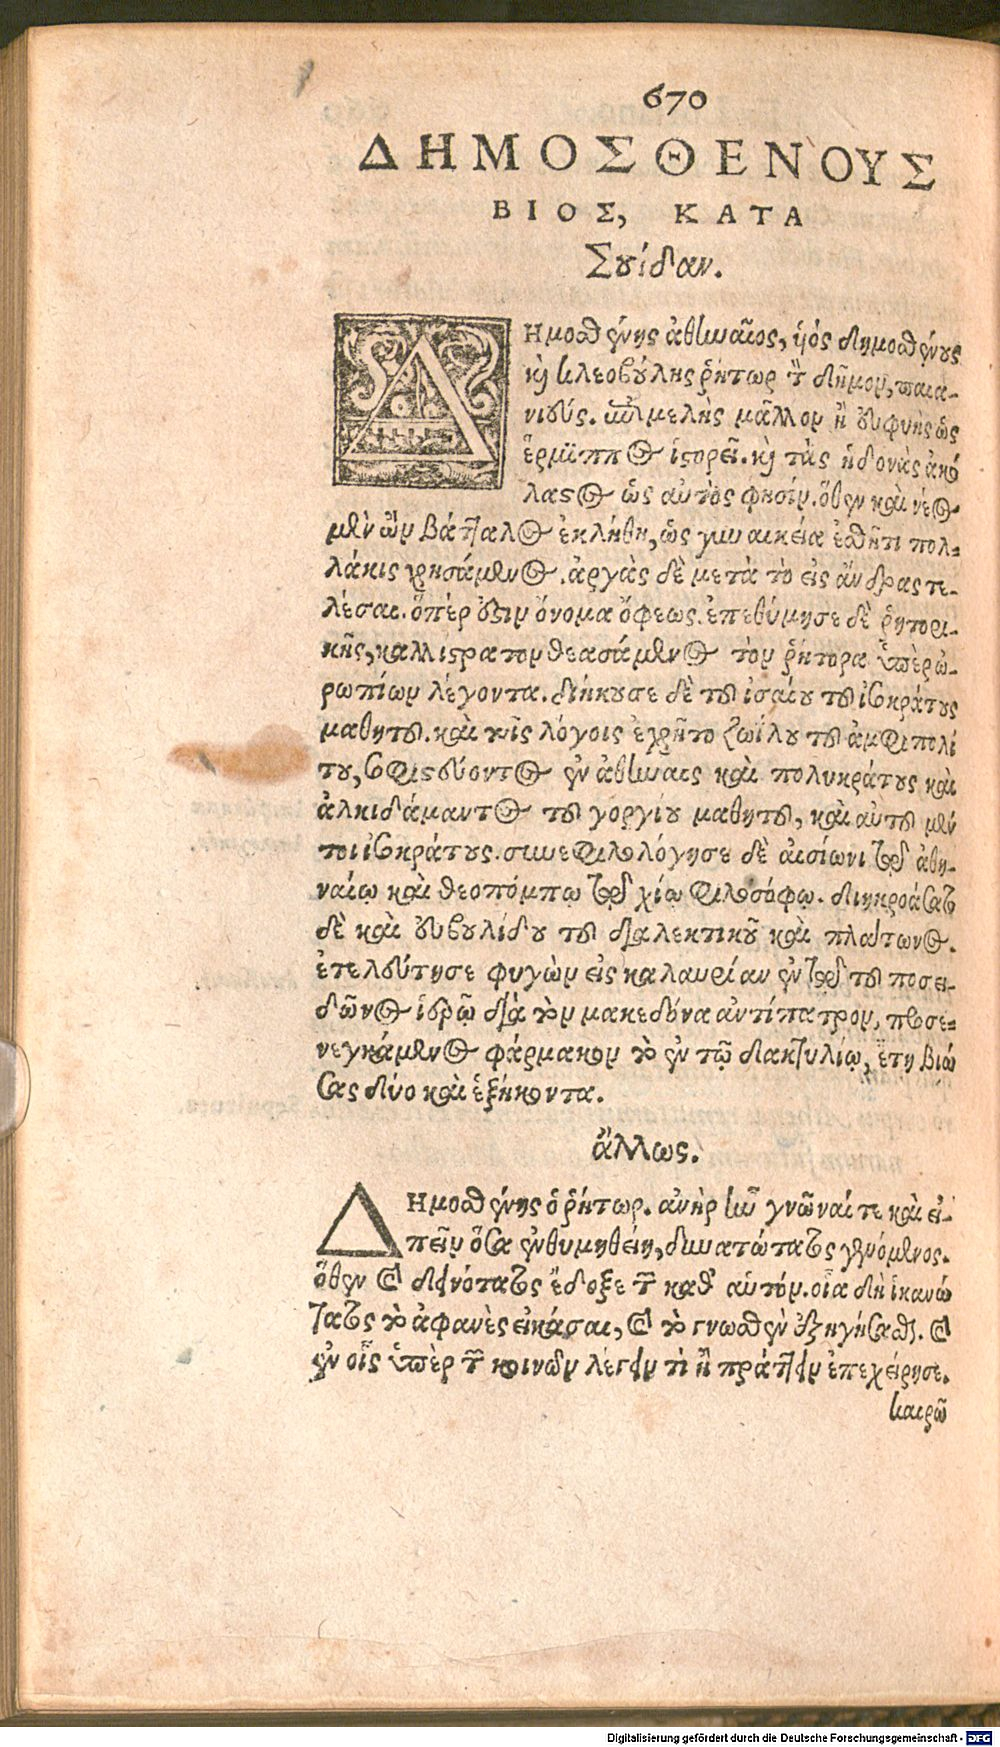 670
ΔΗΜΟΣΘΕΝΟΥΣ
ΒΙΟΣ, ΚΑΤΑ
Σουίδαν.
ΔΗμοσθένης ἀθηναῖος, ἡὸς δημοσθένους
καὶ κλεοβούλης ῥήτωρ τῶν δῆμον, παια-
νιεύς. ἐπιμελὴς μᾶλλον ἢ εὐφυὴς ὡς
ἕρμιππος ἱστορεῖ. καὶ τὰς ἡδονὰς ἀκό
λαστος ὡς αὐτὸς φησίν. ὅθεν καὶ νέος
μὲν ὢν βάτταλος ἐκλήθη, ὡς γυναικεία ἐσθῆτι πολ-
λάκις χρησάμενος. ἀργὰς δὲ μετὰ τὸ εἰς ἄνδρας τε-
λέσαι. ὅπέρ ἐστιν ὄνομα ὄφεως. ἐπεθύμησε δὲ ῥητορι-
κῆς, καλλίστρατον θεασάμενος τὸν ῥήτορα ὑπὲρ ὠ-
ρωπίων λέγοντα. διήκουσε δὲ τοῦ ἰσαίου τοῦ ἰσοκράτους
μαθητοῦ. καὶ τοῖς λόγοις ἐχρῆτο ζωίλου τοῦ ἀμφιπολί
του, σοφιστεύοντος ἐν ἀθήναις καὶ πολυκράτους καὶ
ἀλκιδάμαντος τοῦ γοργίου μαθητοῦ, καὶ αὐτοῦ μέν
τοι ἰσοκράτους. συνεφιλολόγησε δὲ αἰσίωνι τῷ ἀθη-
ναίῳ καὶ θεοπόμπῳ τῷ χίῳ φιλοσόφῳ. διηκροάσατο
δὲ καὶ εὐβουλίδου τοῦ διαλεκτικοῦ καὶ πλάτωνος.
ἐτελεύτησε φυγὼν εἰς καλαυρίαν ἐν τῷ τοῦ ποσει-
δῶνος ἱερῷ διὰ τὸν μακεδόνα ἀντίπατρον, προσε-
νεγκάμενος φάρμακον τὸ ἐν τῷ δακτυλίῳ, ἔτη βιώ
σας δύο καὶ ἑξήκοντα.
ἄλλως.
ΔΗμοσθένης ὁ ῥήτωρ. ἀνὴρ ἦν γνῶναί τε καὶ εἰ-
πεῖν ὅσα ἐνθυμηθείη, δυνατώτατος γενόμενος.
ὅθεν καὶ δεινότατος ἔδοξε τῶν καθ' αὑτόν. οἷα δὴ ἱκανώ
τατος τὸ ἀφανὲς εἰκάσαι, καὶ τὸ γνωσθὲν ἐξηγήσασθαι. καὶ
ἐν οἷς ὑπὲρ τῶν κοινῶν λέγειν τὶ ἢ πράττειν ἐπεχείρησε.
καιρῶ
Digitalisierung gefördert durch die Deutsche Forschungsgemeinschaft - DFG